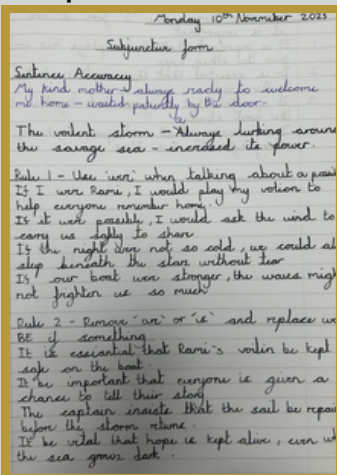 Monday 10th November 2025
Subjunctive form
Sentence Accuracy
My kind mother – always ready to welcome
me home – waited patiently by the door.
The voilent storm – Always lurking around
the savage sea – increased its power.
Rule 1 – Use 'were' when talking about a possi
If I were Rami, I would play my voilion to
help everyone remember home.
If it were possibly, I would ask the wind to
carry us safly to share
If the night were not so cold, we could al
slep beneath the stars without tear
If our boat were stronger, the waves migh
not frighten us so much
Rule 2 – Remove 'are' or 'is' and replace wi
BE if something
It is essiantial that Rami's voilin be kept
safe on the boat.
It be important that everyone is given a
chance to tell their story
The captain insists that the sail be repai
before the storm returns.
It be vital that hope is kept alive, even wh
the sea grows dark.